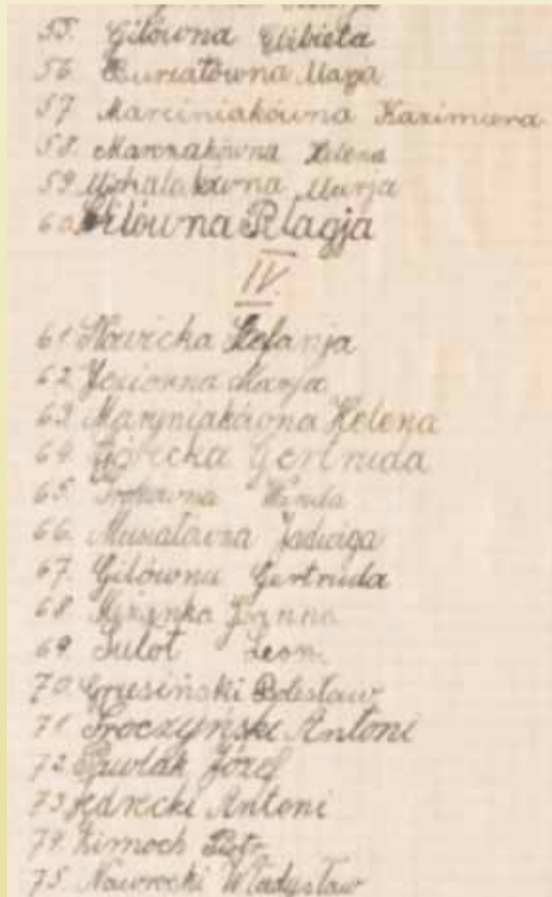 55. Gilówna Elżbieta
56. Marja
57. Marciniakówna Kazimiera
58. Marczakówna Helena
59. Michalakówna Marja
60. Gilówna Plagja
IV.
61. Nawicka Stefanja
62. Marja
63. Marcyniakówna Helena
64. Górecka Gertruda
65. Wanda
66. Musiałówna Jadwiga
67. Gilówna Gertruda
68. Joanna
69. Sulot Leon
70. Bolesław
71. Troczyński Antoni
72. Pawlak Józef
73. Jędrecki Antoni
74. Zimoch Piotr
75. Nawrocki Władysław